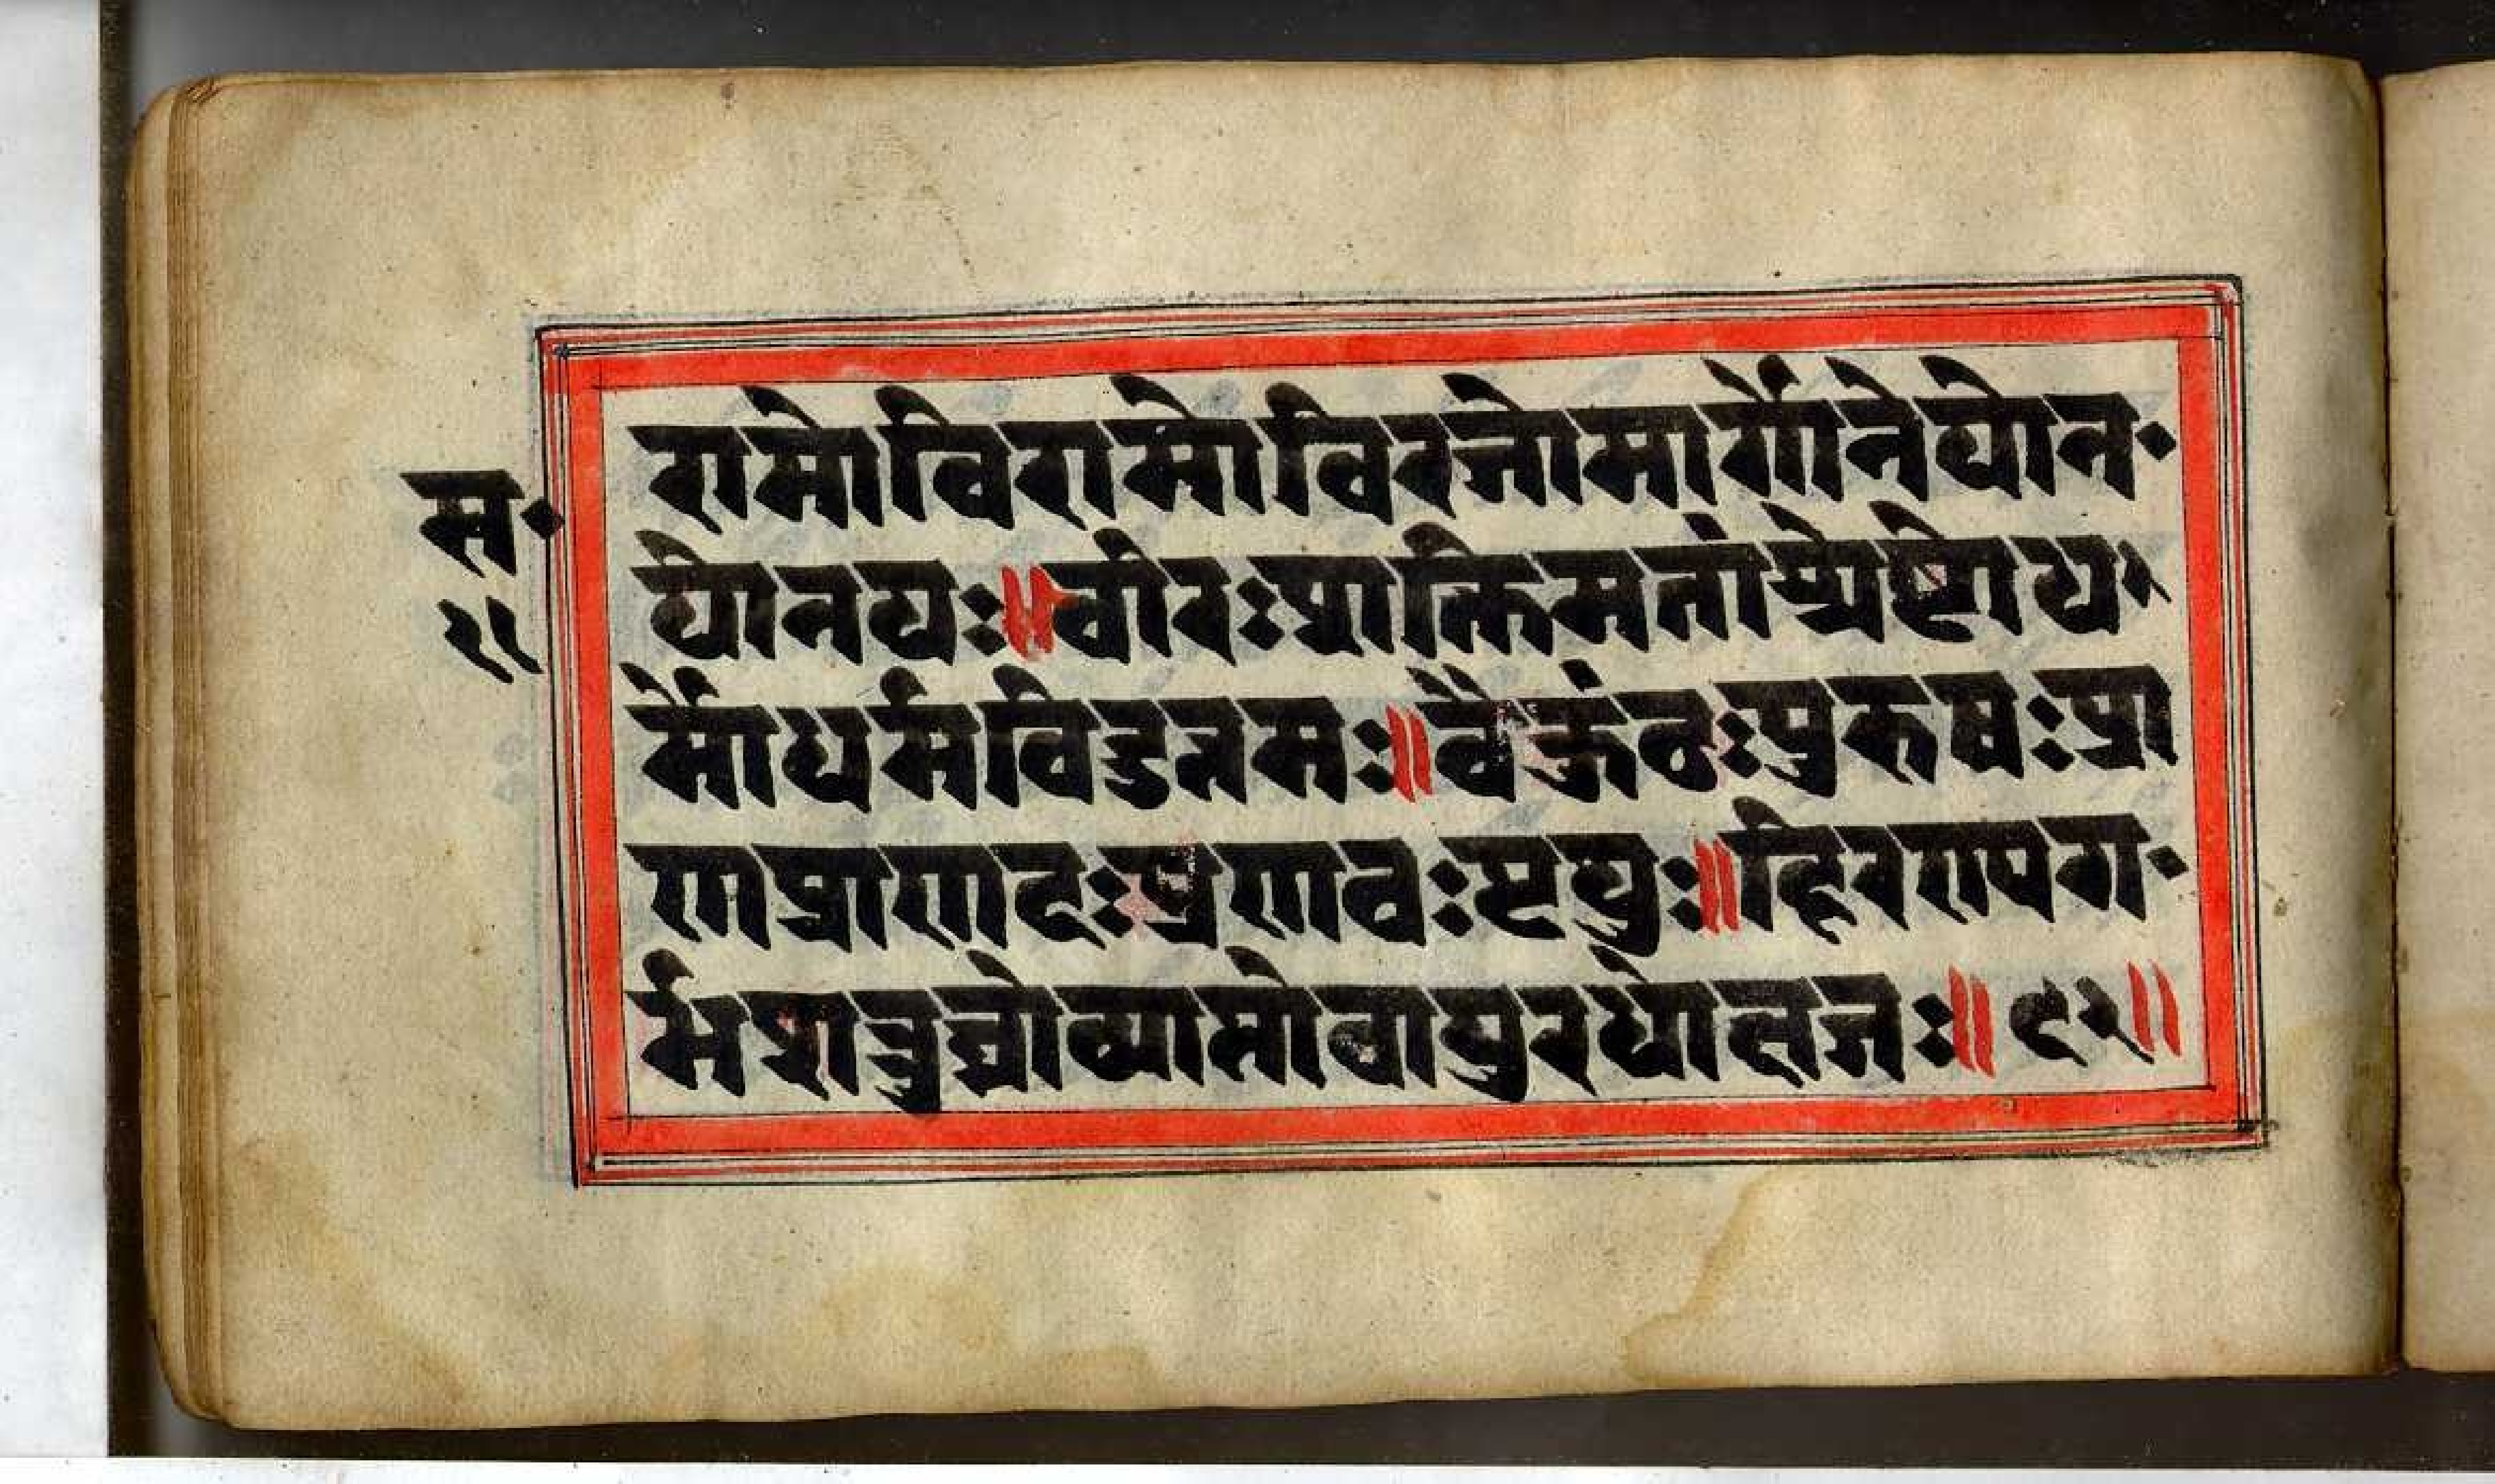 स॰
२१
रामोविरामोविरजोमार्गोनेयोन॰
योनयः॥वीरःशक्तिमतांश्रेष्टोध॰
र्मोधर्मविदुत्तमः॥वैकुंठःपुरुषःप्रा
णःप्राणदःप्रणवःपृथुः॥हिरण्यग॰
र्भशत्रुघ्नोव्याप्तोवायुरधोक्षजः॥१२॥